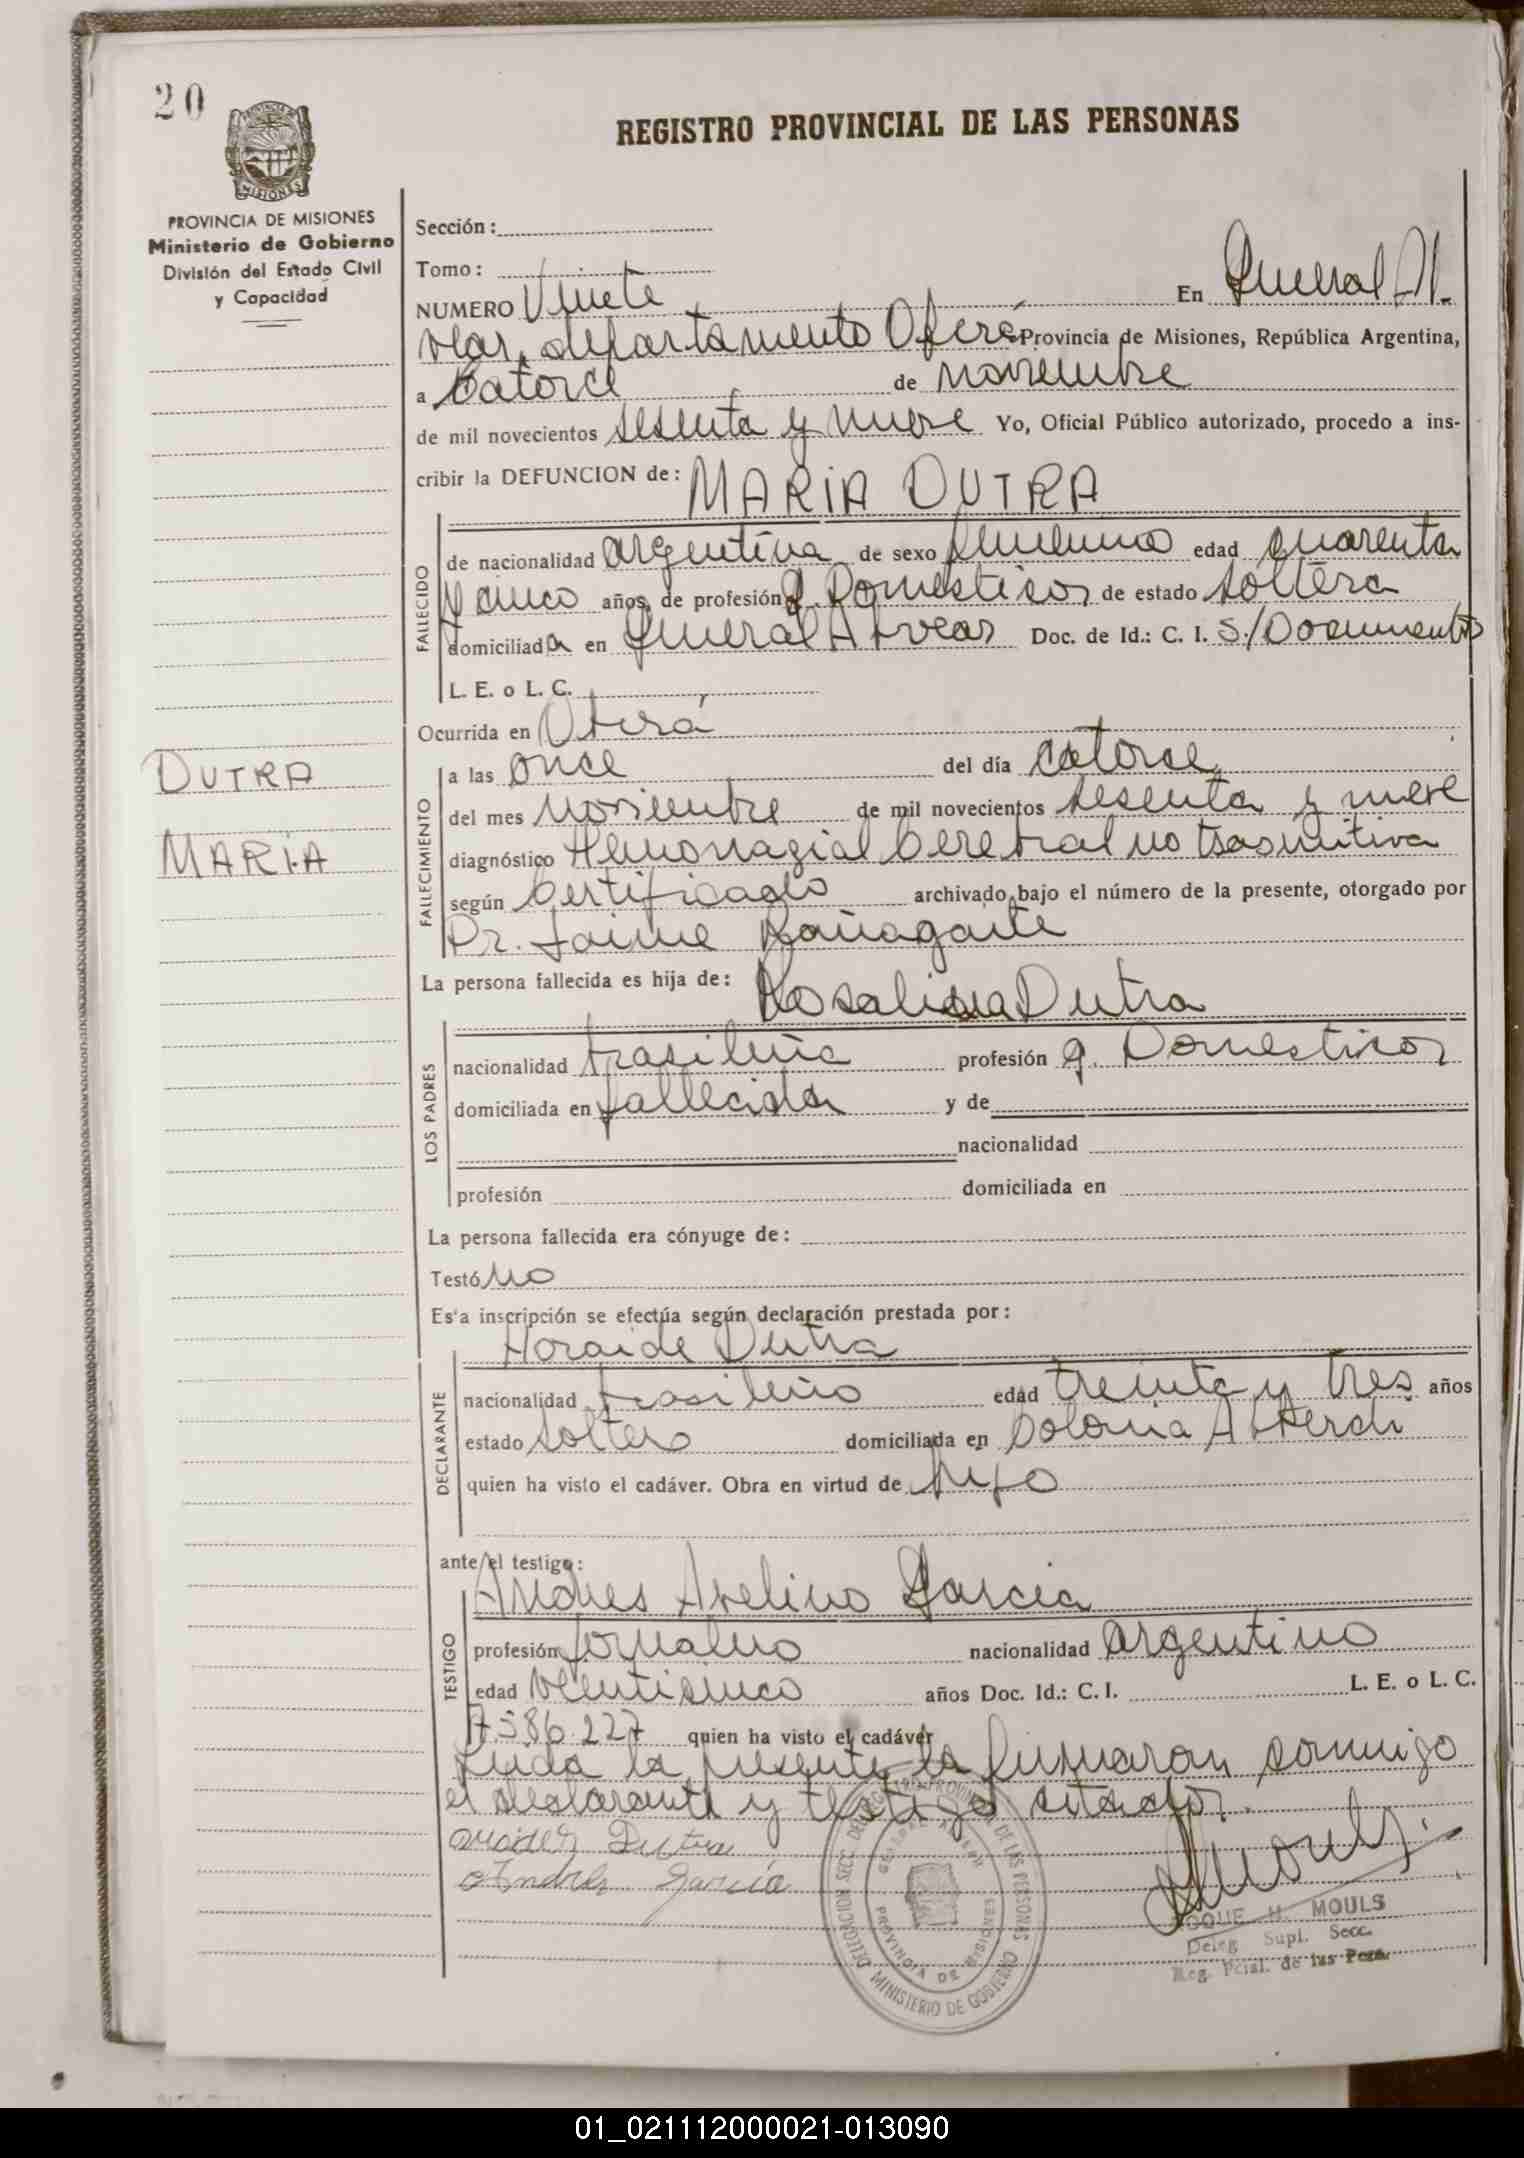 20
REGISTRO PROVINCIAL DE LAS PERSONAS
PROVINCIA DE MISIONES
MISIONES
PROVINCIA DE MISIONES
Ministerio de Gobierno
División del Estado Civil
y Capacidad
Sección:
Tomo:
NUMERO Veinte En General Al-
vear, departamento Oberá Provincia de Misiones, República Argentina,
a Catorce de noviembre
de mil novecientos sesenta y nueve Yo, Oficial Público autorizado, procedo a ins-
cribir la DEFUNCION de: MARIA DUTRA
FALLECIDO
de nacionalidad argentina de sexo femenino edad cuarenta
y cinco años, de profesión q. Domesticos de estado soltera
domiciliada en General Alvear Doc. de Id.: C. I. S/Documentos
L. E. o L. C.
Ocurrida en Oberá
DUTRA
MARIA
FALLECIMIENTO
a las once del día catorce
del mes noviembre de mil novecientos sesenta y nueve
diagnóstico Hemorragial Cerebral no
según Certificado archivado bajo el número de la presente, otorgado por
Dr. Jaime
La persona fallecida es hija de: Rosalina Dutra
LOS PADRES
nacionalidad brasileña profesión q. Domesticos
domiciliada en fallecida y de
nacionalidad
profesión domiciliada en
La persona fallecida era cónyuge de:
Testó no
Es'a inscripción se efectúa según declaración prestada por:
Horaide Dutra
DECLARANTE
nacionalidad brasileño edad treinta y tres años
estado soltero domiciliada en Colonia Alberdi
quien ha visto el cadáver. Obra en virtud de hijo
ante el testigo:
Andres Avelino Garcia
TESTIGO
profesión Jornalero nacionalidad argentino
edad venticinco años Doc. Id.: C. I. L. E. o L. C.
7.586.227 quien ha visto el cadáver
Leida la presente la firmaron conmigo
el declarante y testigo citados.
Dutra
Andres Garcia
DELEGACION SECC. DEL REGISTRO PROVINCIAL DE LAS PERSONAS
MINISTERIO DE GOBIERNO
GENERAL ALVEAR
PROVINCIA DE MISIONES
ROQUE H. MOULS
Deleg. Supl. Secc.
Reg. Pcial. de las Pers.
01_021112000021-013090